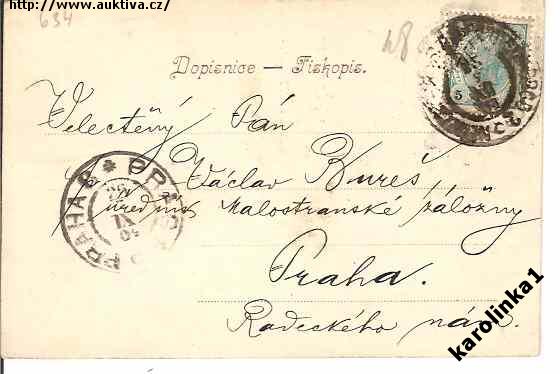 http://www.auktiva.cz/
634
48
Dopisnice — Tiskopis.
5
Velectěný Pán
Václav Bureš,
úředník Malostranské záložny
Praha.
Radeckého nám.
PRAHA
karolinka1